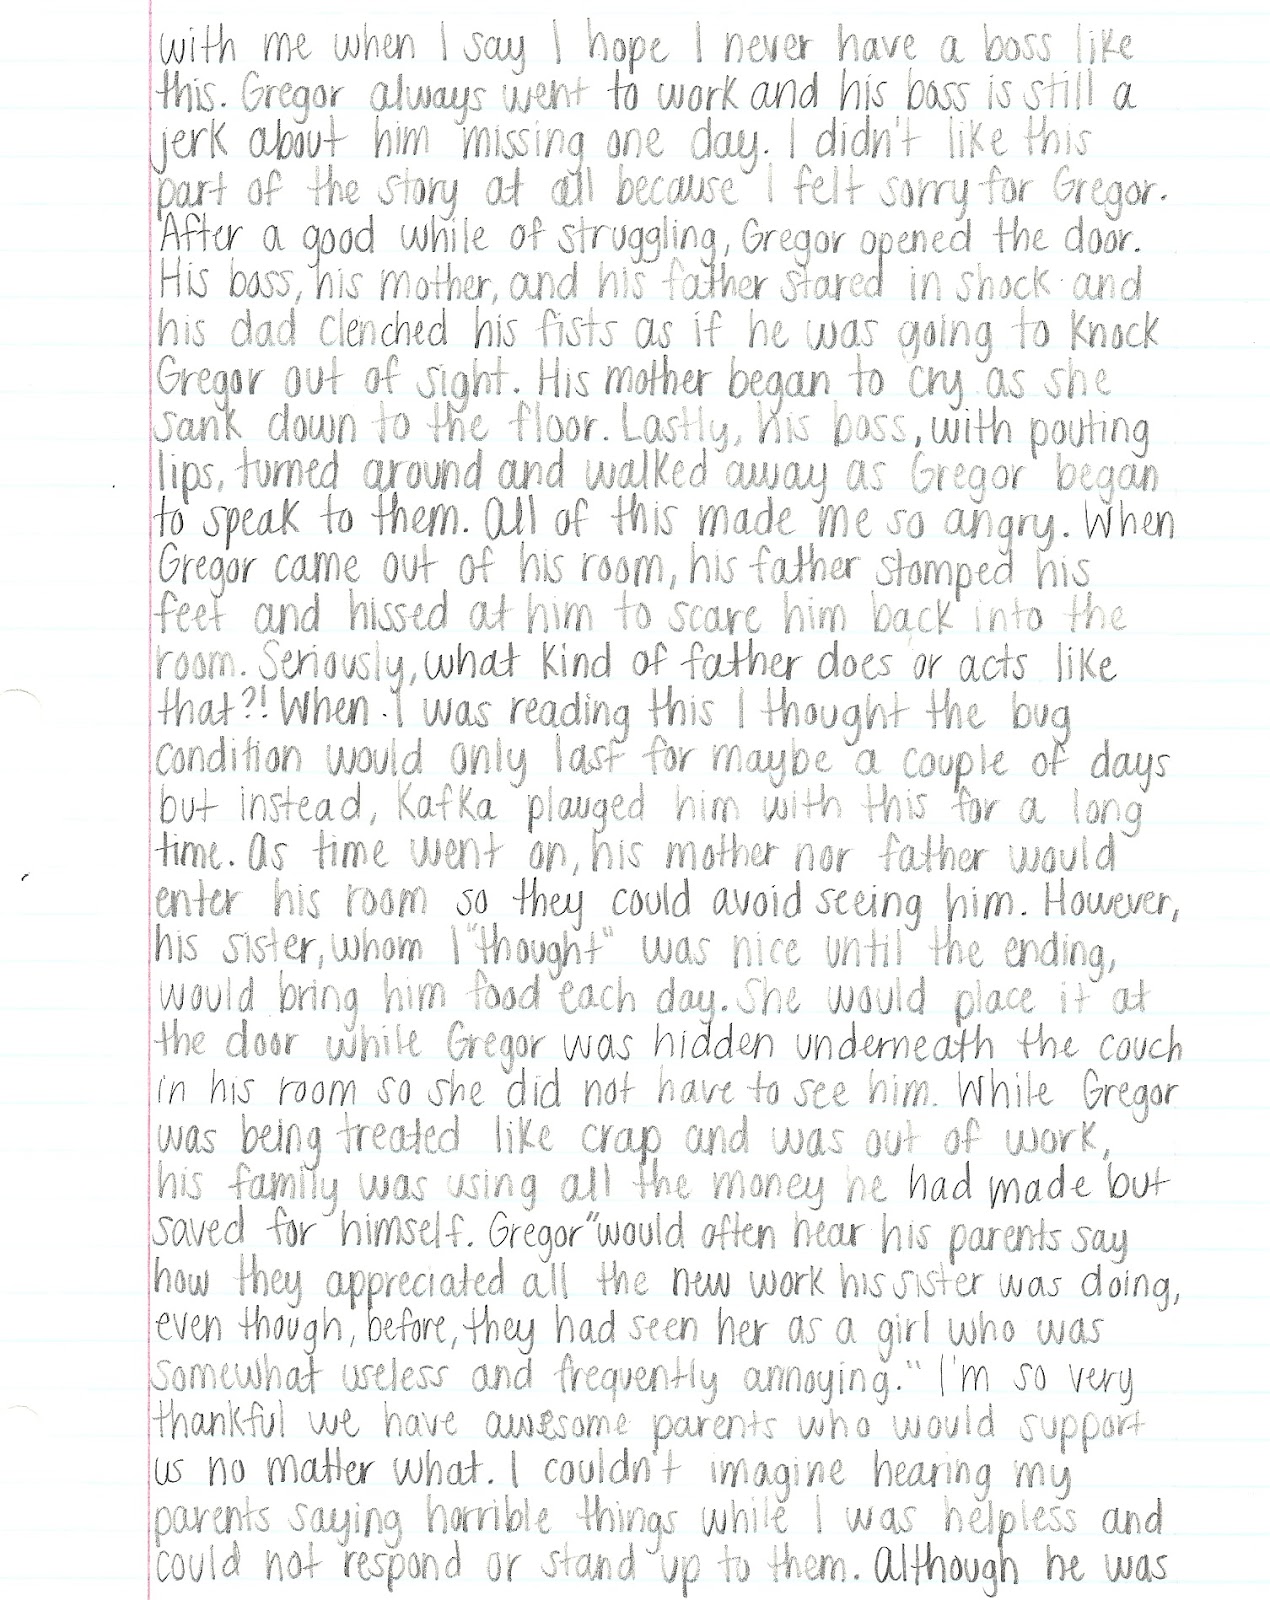 with me when I say I hope I never have a boss like
this. Gregor always went to work and his boss is still a
jerk about him missing one day. I didn't like this
part of the story at all because I felt sorry for Gregor.
After a good while of struggling, Gregor opened the door.
His boss, his mother, and his father stared in shock and
his dad clenched his fists as if he was going to knock
Gregor out of sight. His mother began to cry as she
sank down to the floor. Lastly, his boss, with pouting
lips, turned around and walked away as Gregor began
to speak to them. All of this made me so angry. When
Gregor came out of his room, his father stomped his
feet and hissed at him to scare him back into the
room. Seriously, what kind of father does or acts like
that?! When I was reading this I thought the bug
condition would only last for maybe a couple of days
but instead, Kafka plauged him with this for a long
time. As time went on, his mother nor father would
enter his room so they could avoid seeing him. However,
his sister, whom I "thought" was nice until the ending,
would bring him food each day. She would place it at
the door while Gregor was hidden underneath the couch
in his room so she did not have to see him. While Gregor
was being treated like crap and was out of work,
his family was using all the money he had made but
saved for himself. Gregor "would often hear his parents say
how they appreciated all the new work his sister was doing,
even though, before, they had seen her as a girl who was
somewhat useless and frequently annoying." I'm so very
thankful we have awesome parents who would support
us no matter what. I couldn't imagine hearing my
parents saying horrible things while I was helpless and
could not respond or stand up to them. Although he was